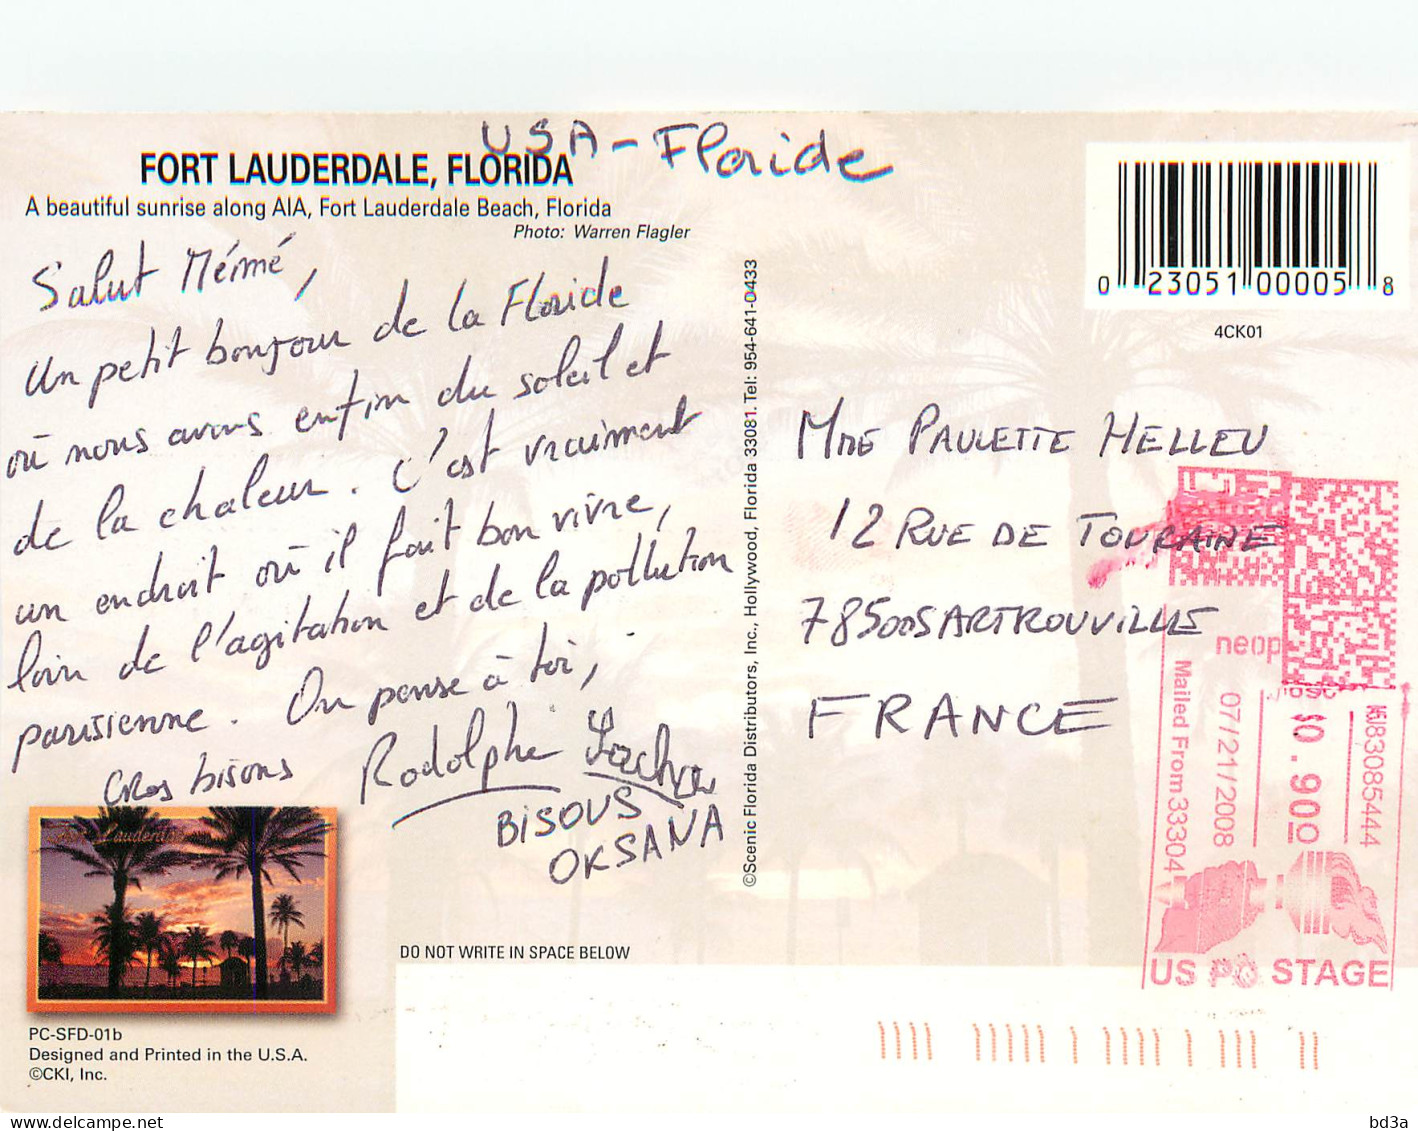 USA - Floride
FORT LAUDERDALE, FLORIDA
A beautiful sunrise along AIA, Fort Lauderdale Beach, Florida
Photo: Warren Flagler
Salut Mémé,
Un petit bonjour de la Floride
où nous avons enfin du soleil et
de la chaleur. C'est vraiment
un endroit où il fait bon vivre,
loin de l'agitation et de la pollution
parisienne. On pense à toi,
Gros bisous Rodolphe
BISOUS
OKSANA
Fort Lauderdale
PC-SFD-01b
Designed and Printed in the U.S.A.
©CKI, Inc.
DO NOT WRITE IN SPACE BELOW
©Scenic Florida Distributors, Inc., Hollywood, Florida 33081. Tel: 954-641-0433
0 23051 00005 8
4CK01
MME PAULETTE HELLEU
12 RUE DE TOURAINE
78500 SARTROUVILLE
FRANCE
neop
Mailed From 33304
07/21/2008
$0.900
US POSTAGE
delcampe.net
bd3a